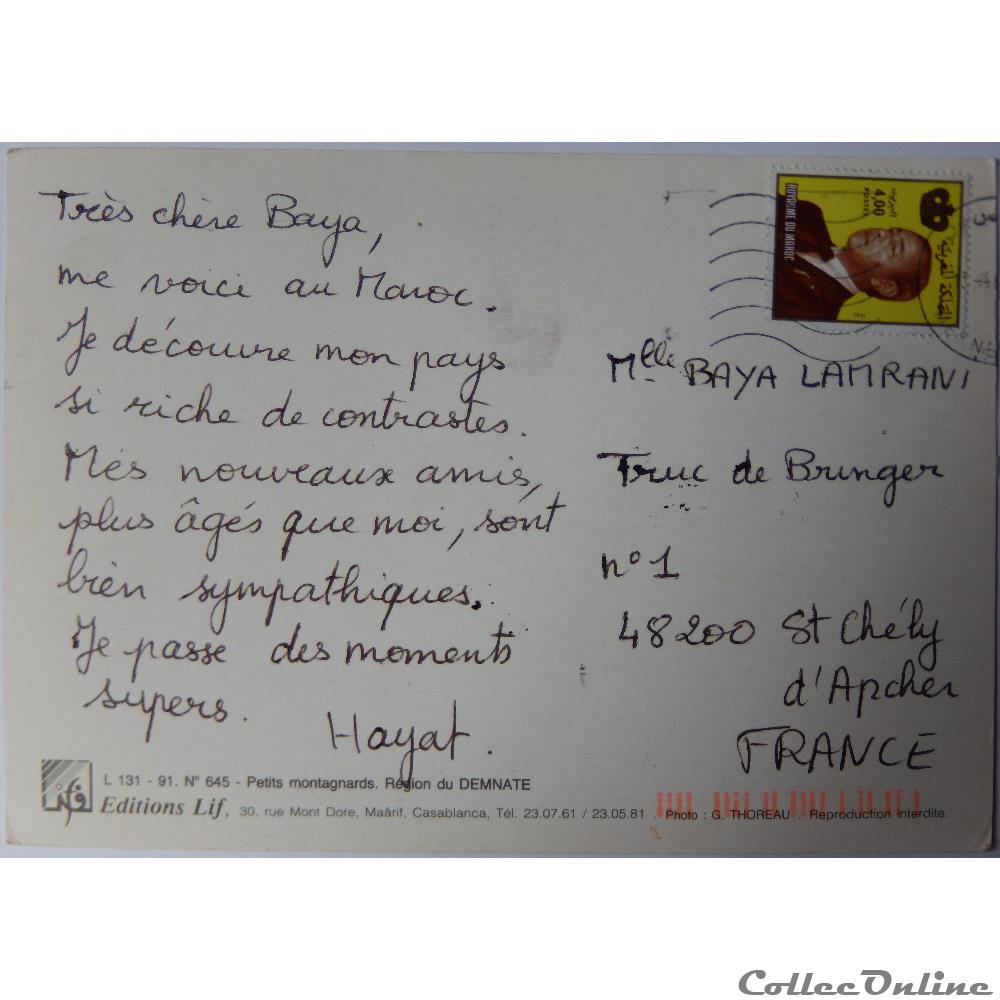 Très chère Baya,
me voici au Maroc.
Je découvre mon pays
si riche de contrastes.
Més nouveaux amis,
plus âgés que moi, sont
bien sympathiques.
Je passe des moments
supers.
Hayat.
ROYAUME DU MAROC
4,00
POSTES
المملكة المغربية
Mlle BAYA LAMRANI
Truc de Bringer
n° 1
48200 St Chély
d'Apcher
FRANCE
L 131 - 91. N° 645 - Petits montagnards. Région du DEMNATE
Editions Lif, 30, rue Mont Dore, Maârif, Casablanca, Tél. 23.07.61 / 23.05.81 Photo : G. THOREAU Reproduction interdite.
CollecOnline